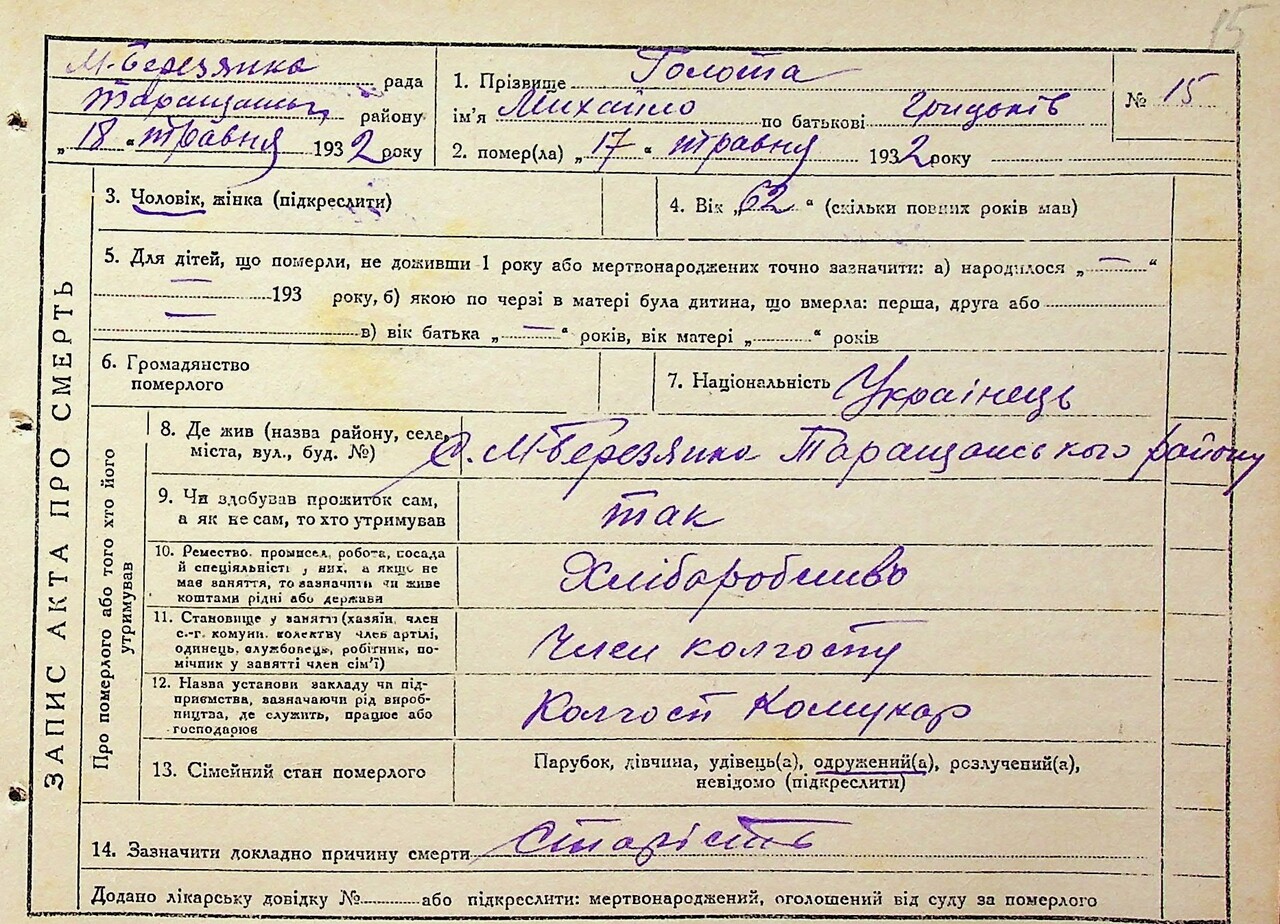 15
М-Березянка рада
Таращанськ району
„18“ травня 1932 року
1. Прізвище Голота
ім'я Михайло по батькові Грицьків
2. помер(ла) „17“ травня 1932 року
№ 15
ЗАПИС АКТА ПРО СМЕРТЬ
3. Чоловік, жінка (підкреслити)
4. Вік „62“ (скільки повних років мав)
5. Для дітей, що померли, не доживши 1 року або мертвонароджених точно зазначити: а) народилося „—“
— 193 року, б) якою по черзі в матері була дитина, що вмерла: перша, друга або
— в) вік батька „—“ років, вік матері „ “ років
6. Громадянство
померлого
7. Національність Українець
Про померлого або того хто його
утримував
8. Де жив (назва району, села,
міста, вул., буд. №)
с. М-Березянка Таращанського району
9. Чи здобував прожиток сам,
а як не сам, то хто утримував
так
10. Ремество, промисел, робота, посада
й спеціяльність у них, а якщо не
має заняття, то зазначити чи живе
коштами рідні або держави
Хліборобство
11. Становище у занятті (хазяїн, член
с.-г. комуни, колективу член артілі,
одинець, службовець, робітник, по-
мічник у занятті член сім'ї)
Член колгоспу
12. Назва установи закладу чи під-
приємства, зазначаючи рід вироб-
ництва, де служить, працює або
господарює
Колгосп Комунар
13. Сімейний стан померлого
Парубок, дівчина, удівець(а), одружений(а), розлучений(а),
невідомо (підкреслити)
14. Зазначити докладно причину смерти Старість
Додано лікарську довідку № або підкреслити: мертвонароджений, оголошений від суду за померлого